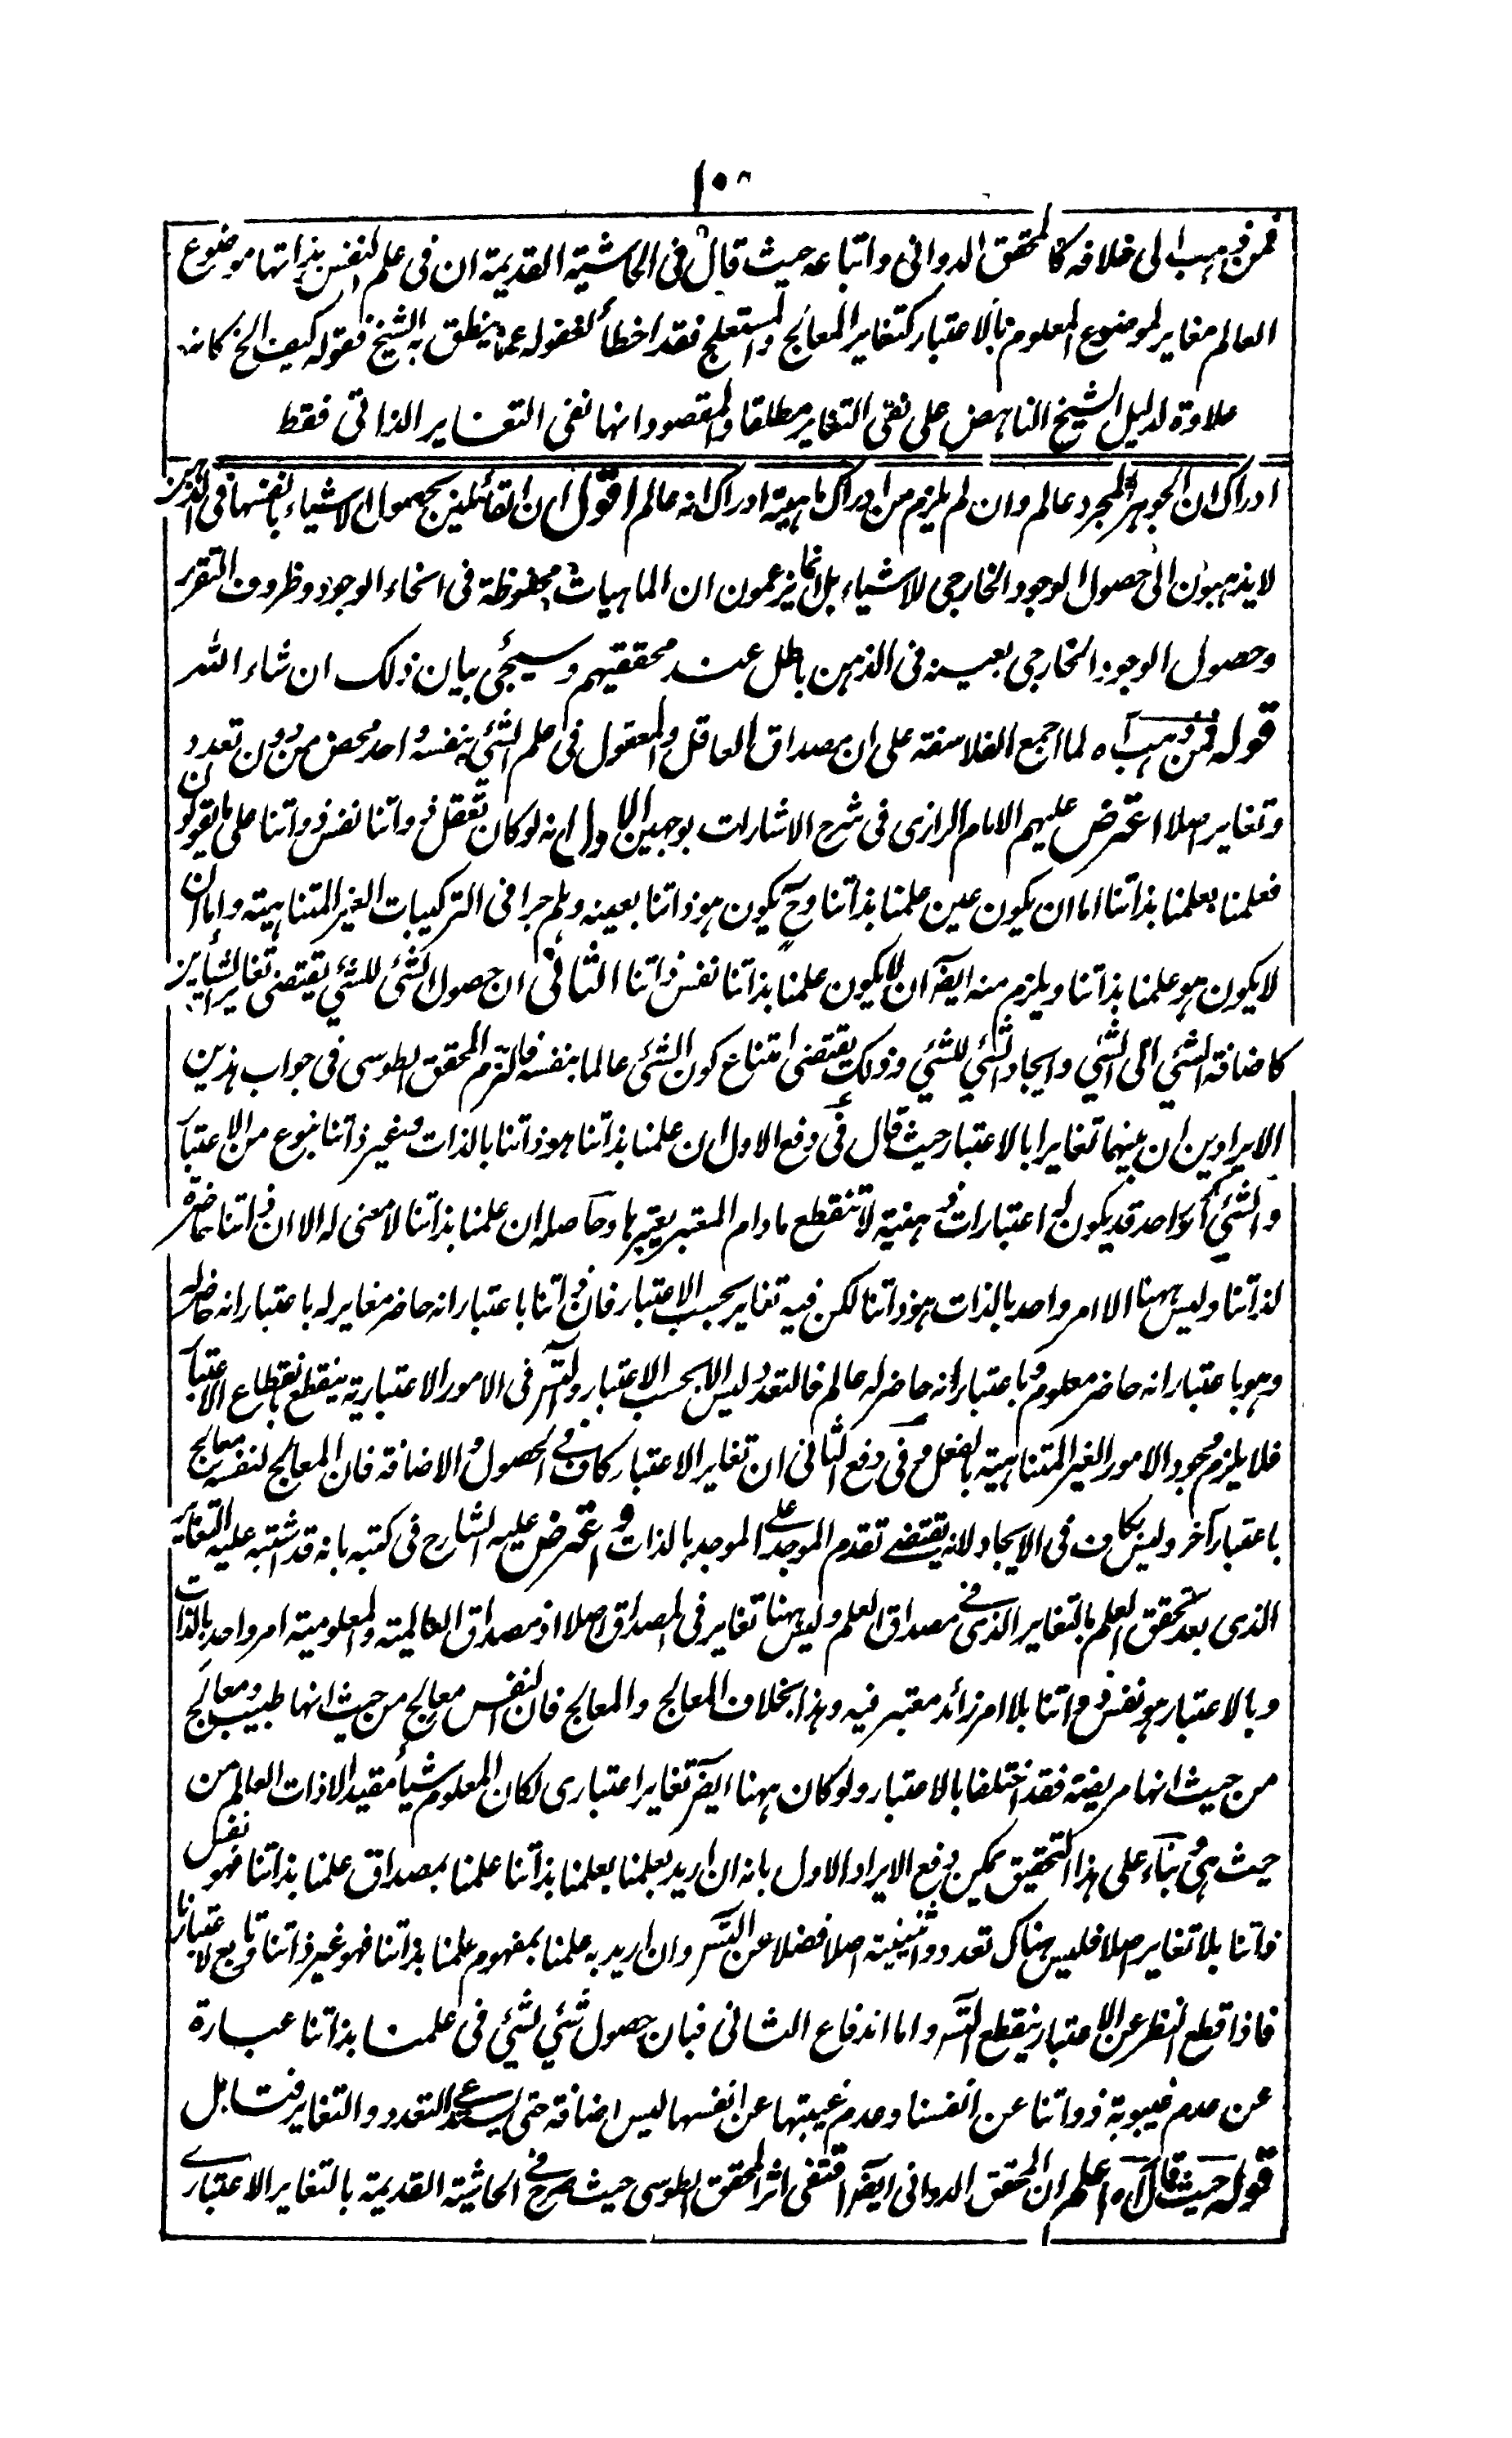 ١٠٨
فمن ذهب الى خلافه كالمحقق الدوانى واتباعه حيث قال فى الحاشية القديمة ان فى علم النفس بذاتها موضوع
العالم مغاير لموضوع المعلوم بالاعتبار كتغاير المعالج والمستعلج فقد اخطأ لغفوله عما ينطق به الشيخ فقوله كيف الخ كانه
علاوة لدليل الشيخ الناهض على نفى التغاير مطلقا والمقصود انها نفى التغاير الذاتى فقط
ادراك ان الجوهر المجرد عالم وان لم يلزم من ادراك ماهية ادراك انه عالم اقول ان القائلين بحصول الاشياء بانفسها فى الذهن
لا يذهبون الى حصول الوجود الخارجى للاشياء بل انما يزعمون ان الماهيات محفوظة فى انحاء الوجود وظروف التقرر
وحصول الوجود الخارجى بعينه فى الذهن باطل عند محققيهم وسيجئ بيان ذلك ان شاء الله
قوله فمن ذهب آه لما اجمع الفلاسفة على ان مصداق العاقل والمعقول فى علم الشئ بنفسه واحد محض من دون تعدد
وتغاير اصلا اعترض عليهم الامام الرازى فى شرح الاشارات بوجهين الاول انه لو كان تعقل ذواتنا نفس ذواتنا على ما يقولون
فعلمنا بعلمنا بذاتنا اما ان يكون عين علمنا بذاتنا وح يكون هو ذاتنا بعينه وهلم جرا فى التركيبات الغير المتناهية واما ان
لا يكون هو علمنا بذاتنا ويلزم منه ايضا ان لا يكون علمنا بذاتنا نفس ذاتنا الثانى ان حصول الشئ للشئ يقتضى تغاير الشيئين
كاضافة الشئ الى الشئ وايجاد الشئ للشئ وذلك يقتضى امتناع كون الشئ عالما بنفسه فالتزم المحقق الطوسى فى جواب هذين
الايرادين ان بينهما تغايرا بالاعتبار حيث قال فى دفع الاول ان علمنا بذاتنا هو ذاتنا بالذات وغير ذاتنا بنوع من الاعتبار
والشئ الواحد قد يكون له اعتبارات ذهنية لا تنقطع ما دام المعتبر يعتبرها وحاصله ان علمنا بذاتنا لا معنى له الا ان ذاتنا حاضرة
لذاتنا وليس ههنا الا امر واحد بالذات هو ذاتنا لكن فيه تغاير بحسب الاعتبار فان ذاتنا باعتبار انه حاضر مغاير له باعتبار انه حاضر له
وهو باعتبار انه حاضر معلوم وباعتبار انه حاضر له عالم فالتعدد ليس الا بحسب الاعتبار والتس فى الامور الاعتبارية ينقطع بانقطاع الاعتبار
فلا يلزم وجود الامور الغير المتناهية بالفعل وفى دفع الثانى ان تغاير الاعتبار كاف فى الحصول والاضافة فان المعالج لنفسه معالج
باعتبار آخر وليس بكاف فى الايجاد لانه يقتضى تقدم الموجد على الموجد بالذات واعترض عليه الشارح فى كتبه بانه قد اشتبه عليه التغاير
الذى بعد تحقق العلم بالتغاير الذى فى مصداق العلم وليس ههنا تغاير فى المصداق اصلا اذ مصداق العالمية والمعلومية امر واحد بالذات
وبالاعتبار هو نفس ذاتنا بلا امر زائد معتبر فيه وهذا بخلاف المعالج والمعالج فان النفس معالج من حيث انها طبيب ومعالج
من حيث انها مريضة فقد اختلفا بالاعتبار ولو كان ههنا ايضا تغاير اعتبارى لكان المعلوم شيأ مقيدا لا ذات العالم من
حيث هى وبناء على هذا التحقيق يمكن دفع الايراد الاول بانه ان اريد بعلمنا بعلمنا بذاتنا علمنا بمصداق علمنا بذاتنا فهو نفس
ذاتنا بلا تغاير اصلا فليس هناك تعدد واثنينية اصلا فضلا عن التس وان اريد به علمنا بمفهوم علمنا بذاتنا فهو غير ذاتنا وتابع لاعتبارنا
فاذا قطع النظر عن الاعتبار ينقطع التس واما اندفاع الثانى فبان حصول شئ لشئ فى علمنا بذاتنا عبارة
عن عدم غيبوبة ذواتنا عن انفسنا وعدم غيبتها عن انفسها ليس اضافة حتى يستدعى التعدد والتغاير فتأمل
قوله حيث قال آه اعلم ان المحقق الدوانى ايضا اقتفى اثر المحقق الطوسى حيث صرح فى الحاشية القديمة بالتغاير الاعتبارى